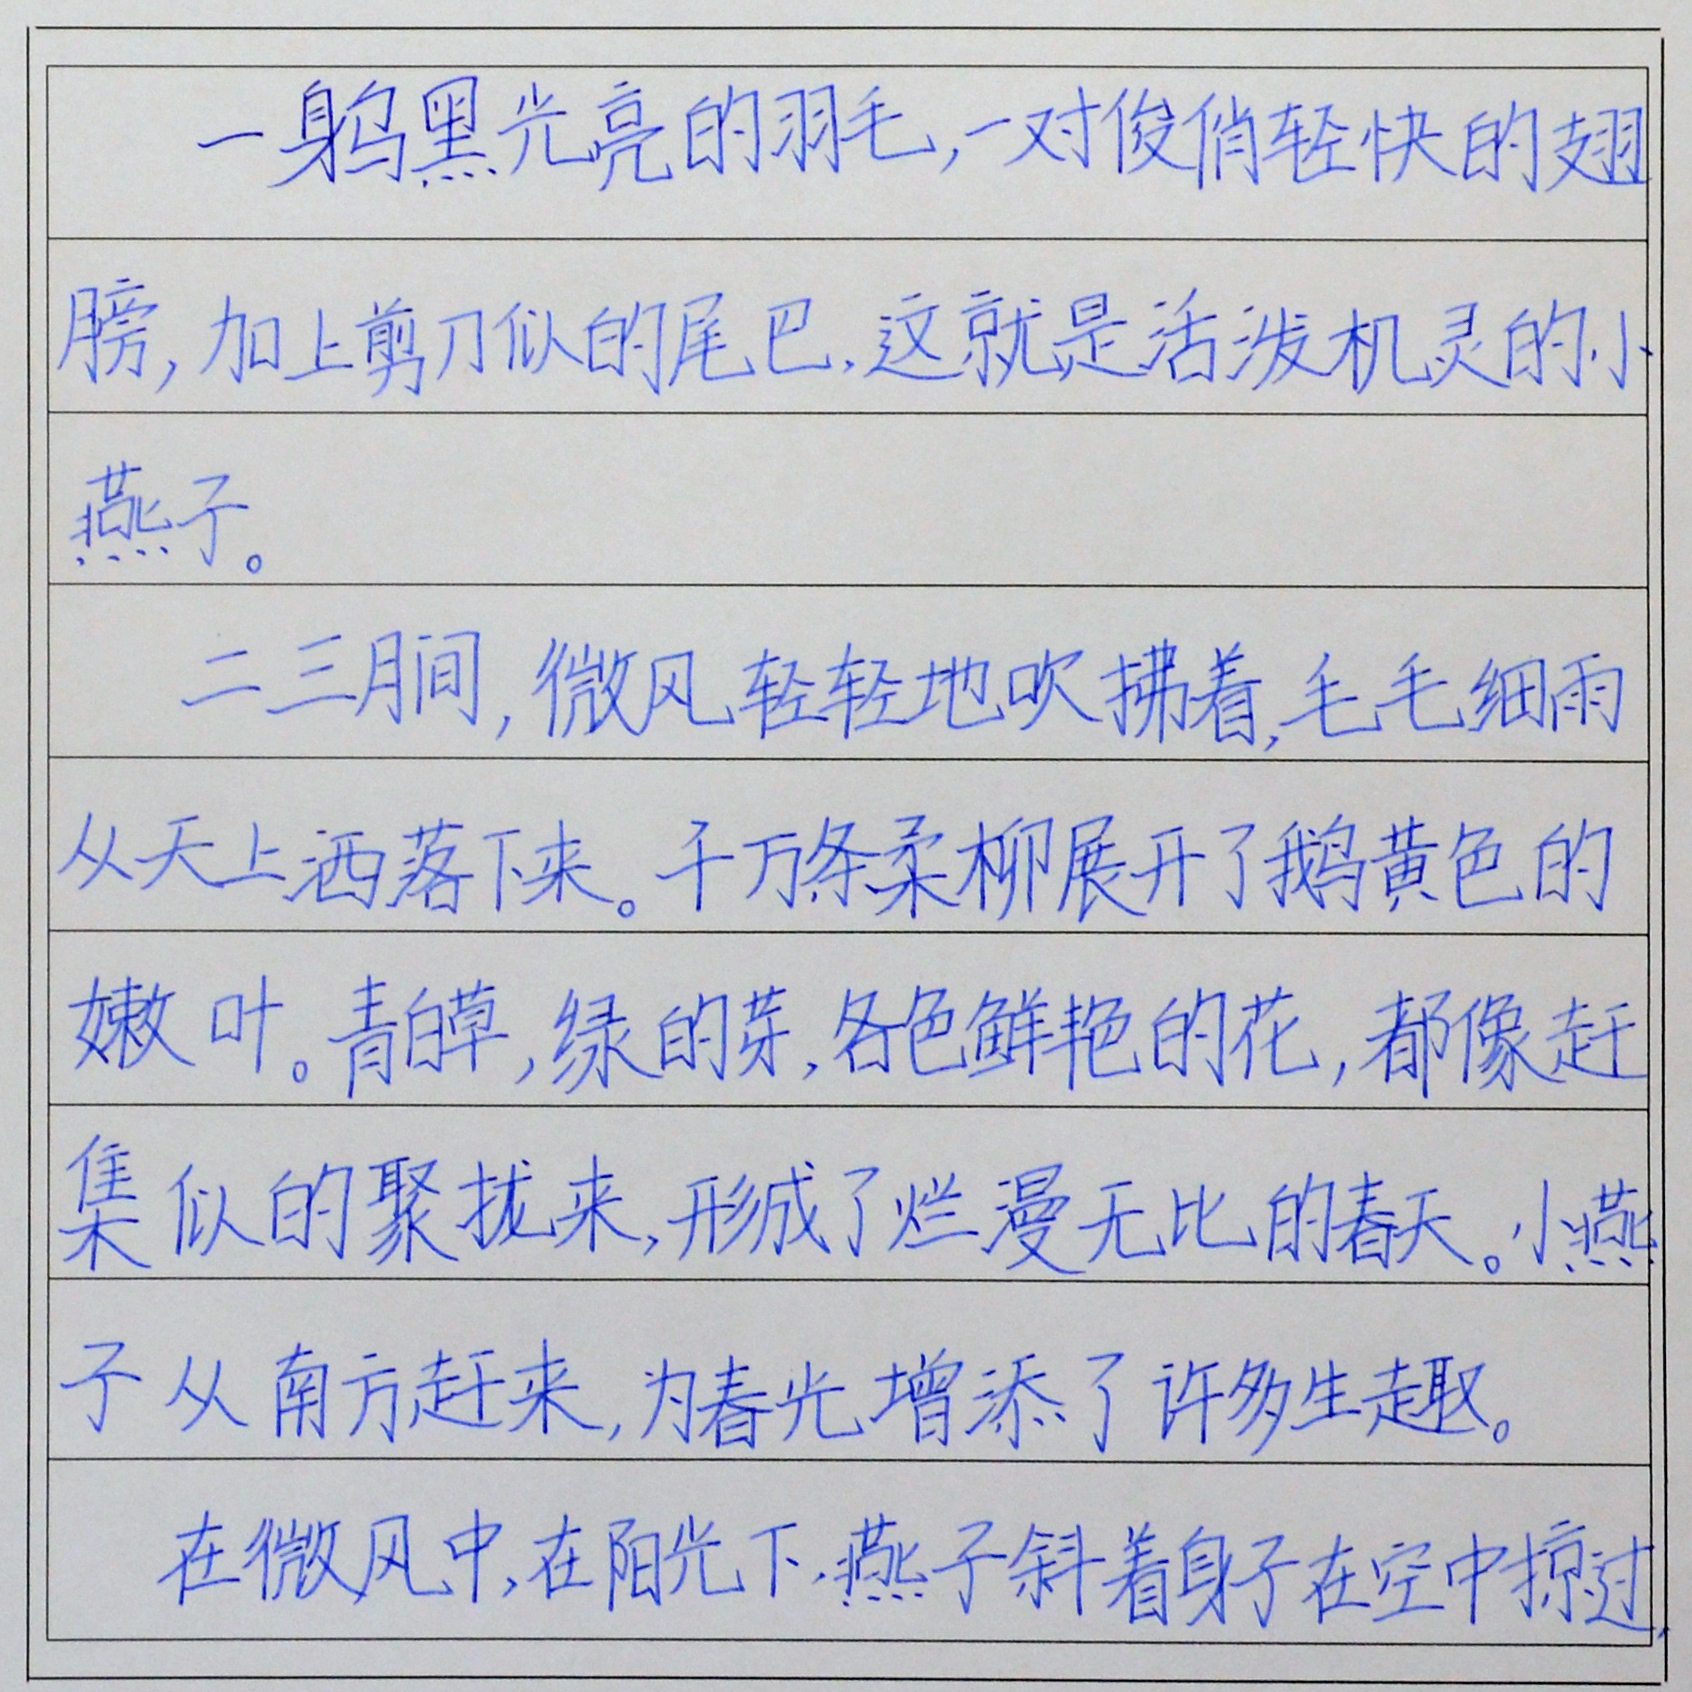 一身乌黑光亮的羽毛,一对俊俏轻快的翅
膀,加上剪刀似的尾巴,这就是活泼机灵的小
燕子。
二三月间,微风轻轻地吹拂着,毛毛细雨
从天上洒落下来。千万条柔柳展开了鹅黄色的
嫩叶。青的草,绿的芽,各色鲜艳的花,都像赶
集似的聚拢来,形成了烂漫无比的春天。小燕
子从南方赶来,为春光增添了许多生趣。
在微风中,在阳光下,燕子斜着身子在空中掠过,